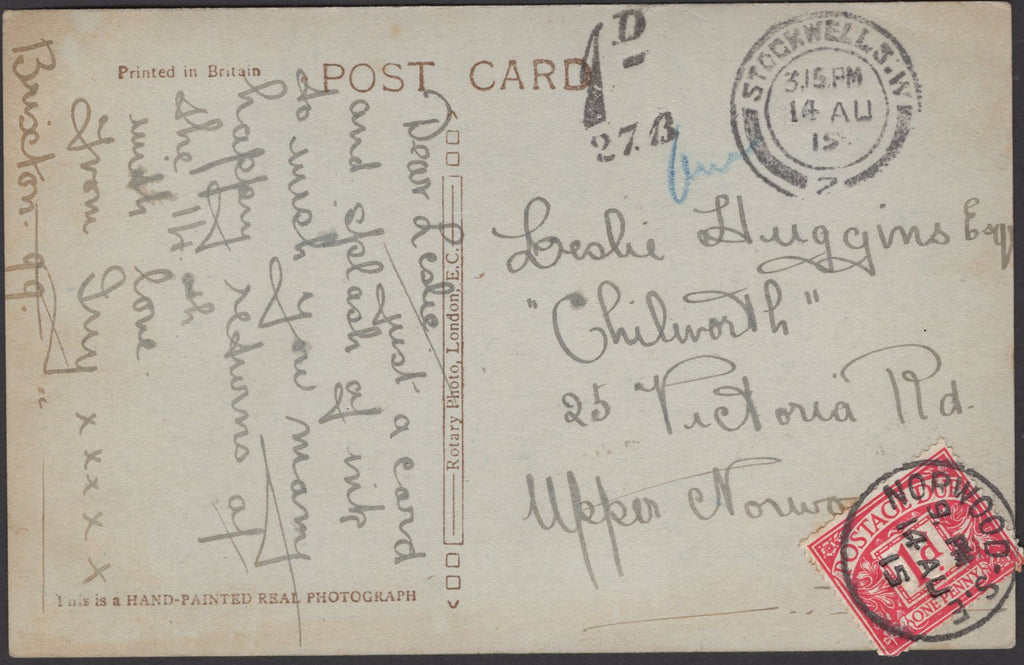 Printed in Britain
POST CARD
1D
27.B
STOCKWELL.S.W
3.15 PM
14 AU
15
7
Leslie Huggins Esq
"Chilworth"
25 Victoria Rd.
Upper Norwo
POSTAGE DUE
1d.
ONE PENNY
NORWOOD. S.E
9 PM
14 AU
15
Rotary Photo, London, E.C.
Dear Leslie
Just a card
and splash of ink
to wish you many
happy returns of
the 14th
with love
from Ivy x x x x x
Brixton.
This is a HAND-PAINTED REAL PHOTOGRAPH